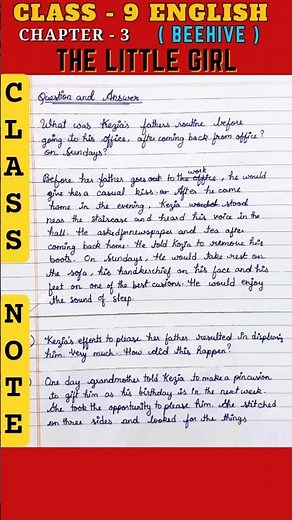 CLASS - 9 ENGLISH
CHAPTER - 3 ( BEEHIVE )
THE LITTLE GIRL
CLASS
NOTE
Question and Answer
What was Kezia's fathers routine before
going to his office, after coming back from office?
on Sundays?
Before her father goes out to work the office, he would
give her a casual kiss. After he came
home in the evening, Kezia would stood
near the staircase and heard his voice in the
hall. He asked for newspaper and tea after
coming back home. He told Kezia to remove his
boots. On Sundays, He would take rest on
the sofa, his handkerchief on his face and his
feet on one of the best cusions. He would enjoy
the sound of sleep.
Kezia's efforts to please her father resulted in displesing
him very much. How did this happen?
One day grandmother told Kezia to make a pincusion
to gift him as his birthday is in the next week.
She took the opportunity to please him. She stitched
on three sides and looked for the things